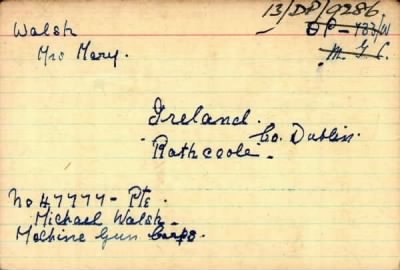 13/DP/9286
Walsh
DP - 483/W
Mrs Mary.
M. G. C.
Ireland.
Co. Dublin.
Rathcoole.
No 47777 - Pte
Michael Walsh -
Machine Gun Corps.